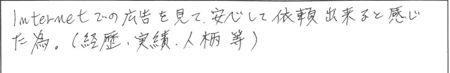 Internetでの広告を見て、安心して依頼出来ると感じ
た為。(経歴、実績、人柄 等)